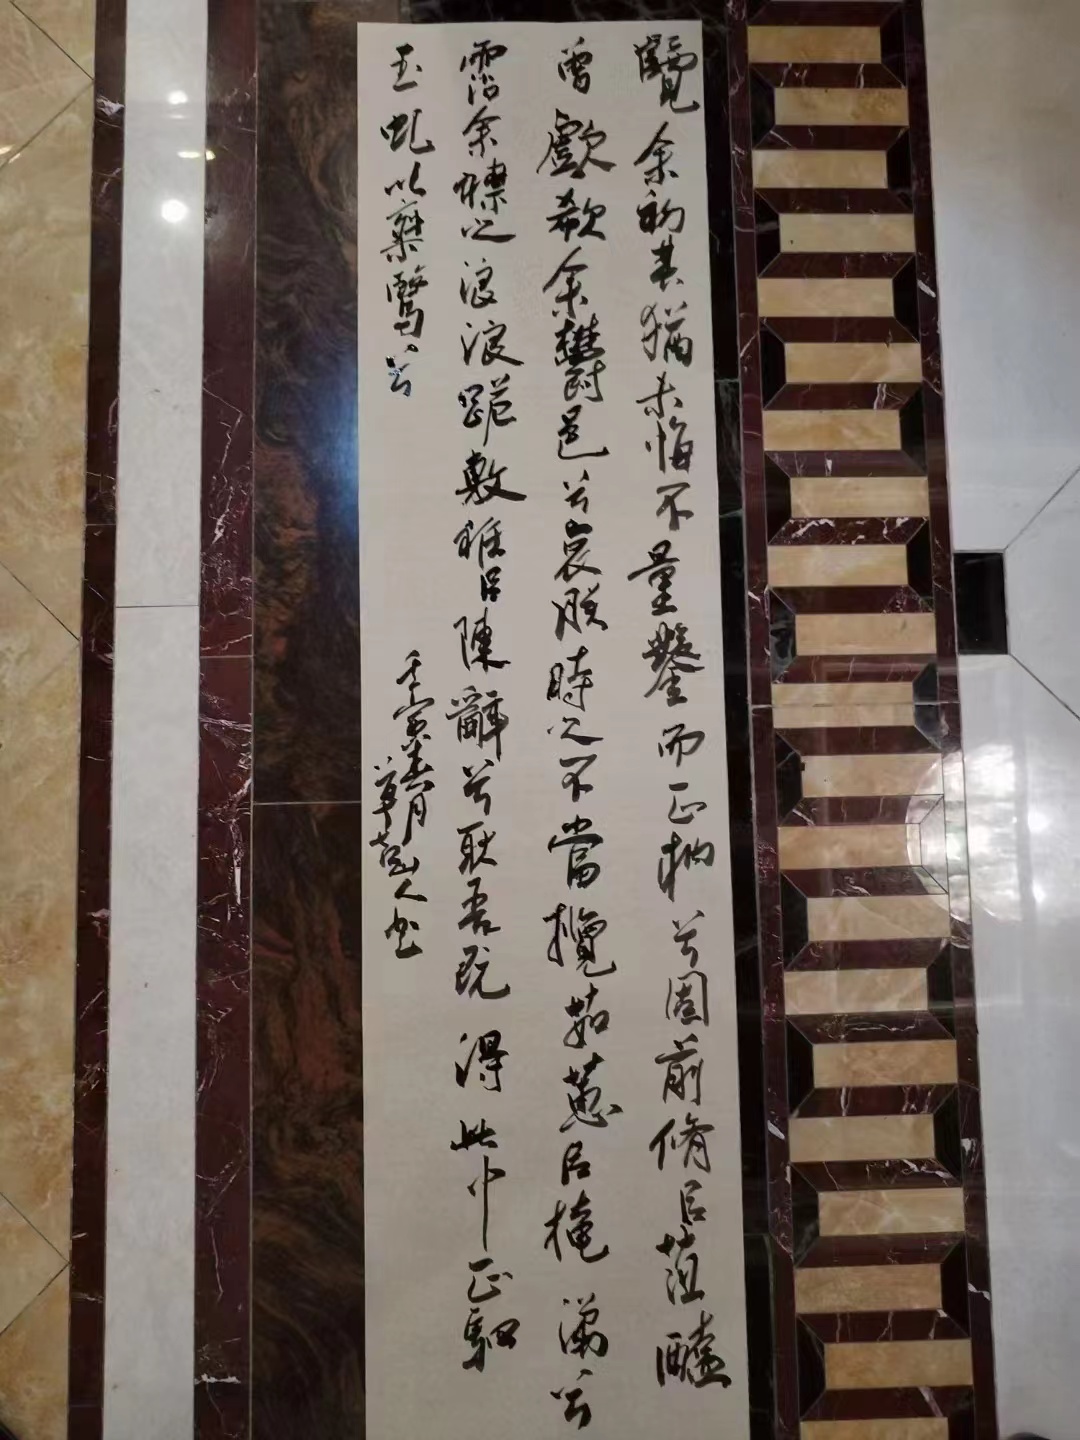 覽余初其猶未悔不量鑿而正枘兮固前脩㠯菹醢
曾歔欷余鬱邑兮哀朕時之不當攬茹蕙㠯掩涕兮
霑余襟之浪浪跪敷衽㠯陳辭兮耿吾既得此中正駟
玉虬以椉鷖兮
壬寅春月
草范人書